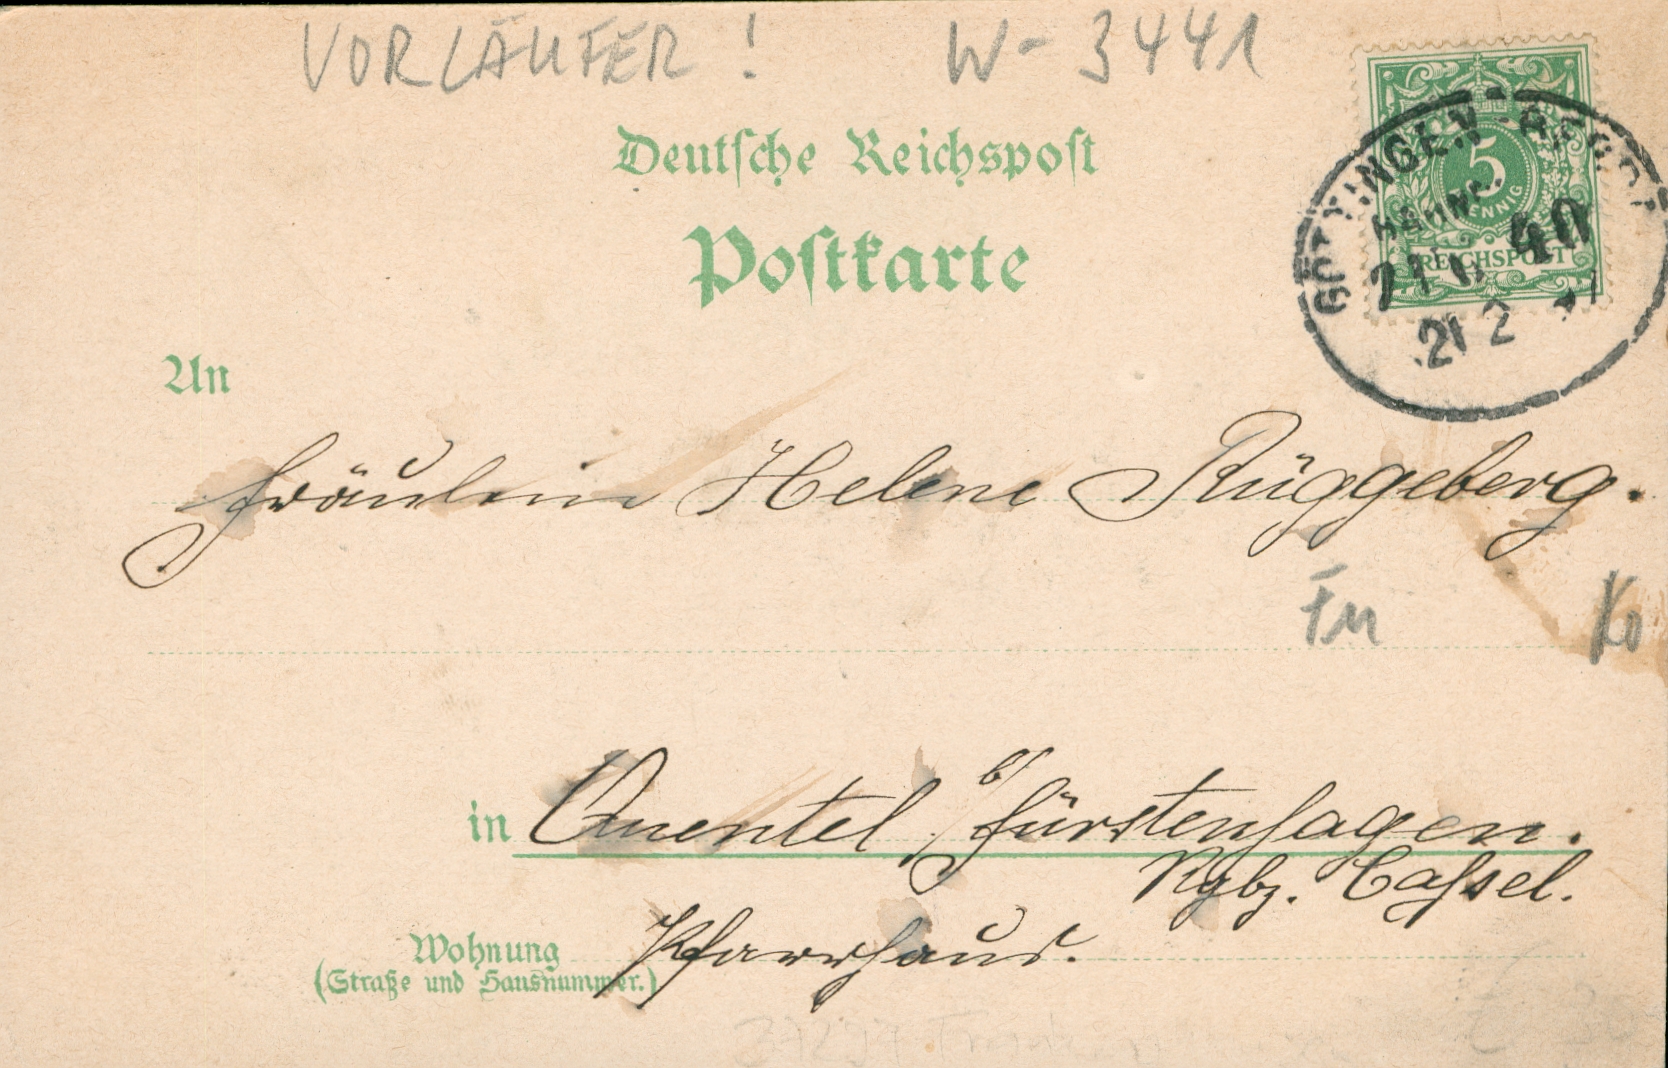 VORLÄUFER! W-3441
Deutsche Reichspost
Postkarte
5
PFENNIG
REICHSPOST
GÖTTINGEN
BAHNP.
ZUG 40
21 2
An
Fräulein Helene Rüggeberg.
Fu
Ko
in Quentel b/Fürstenhagen.
Rgbz. Cassel.
Wohnung Pfarrhaus.
(Straße und Hausnummer.)